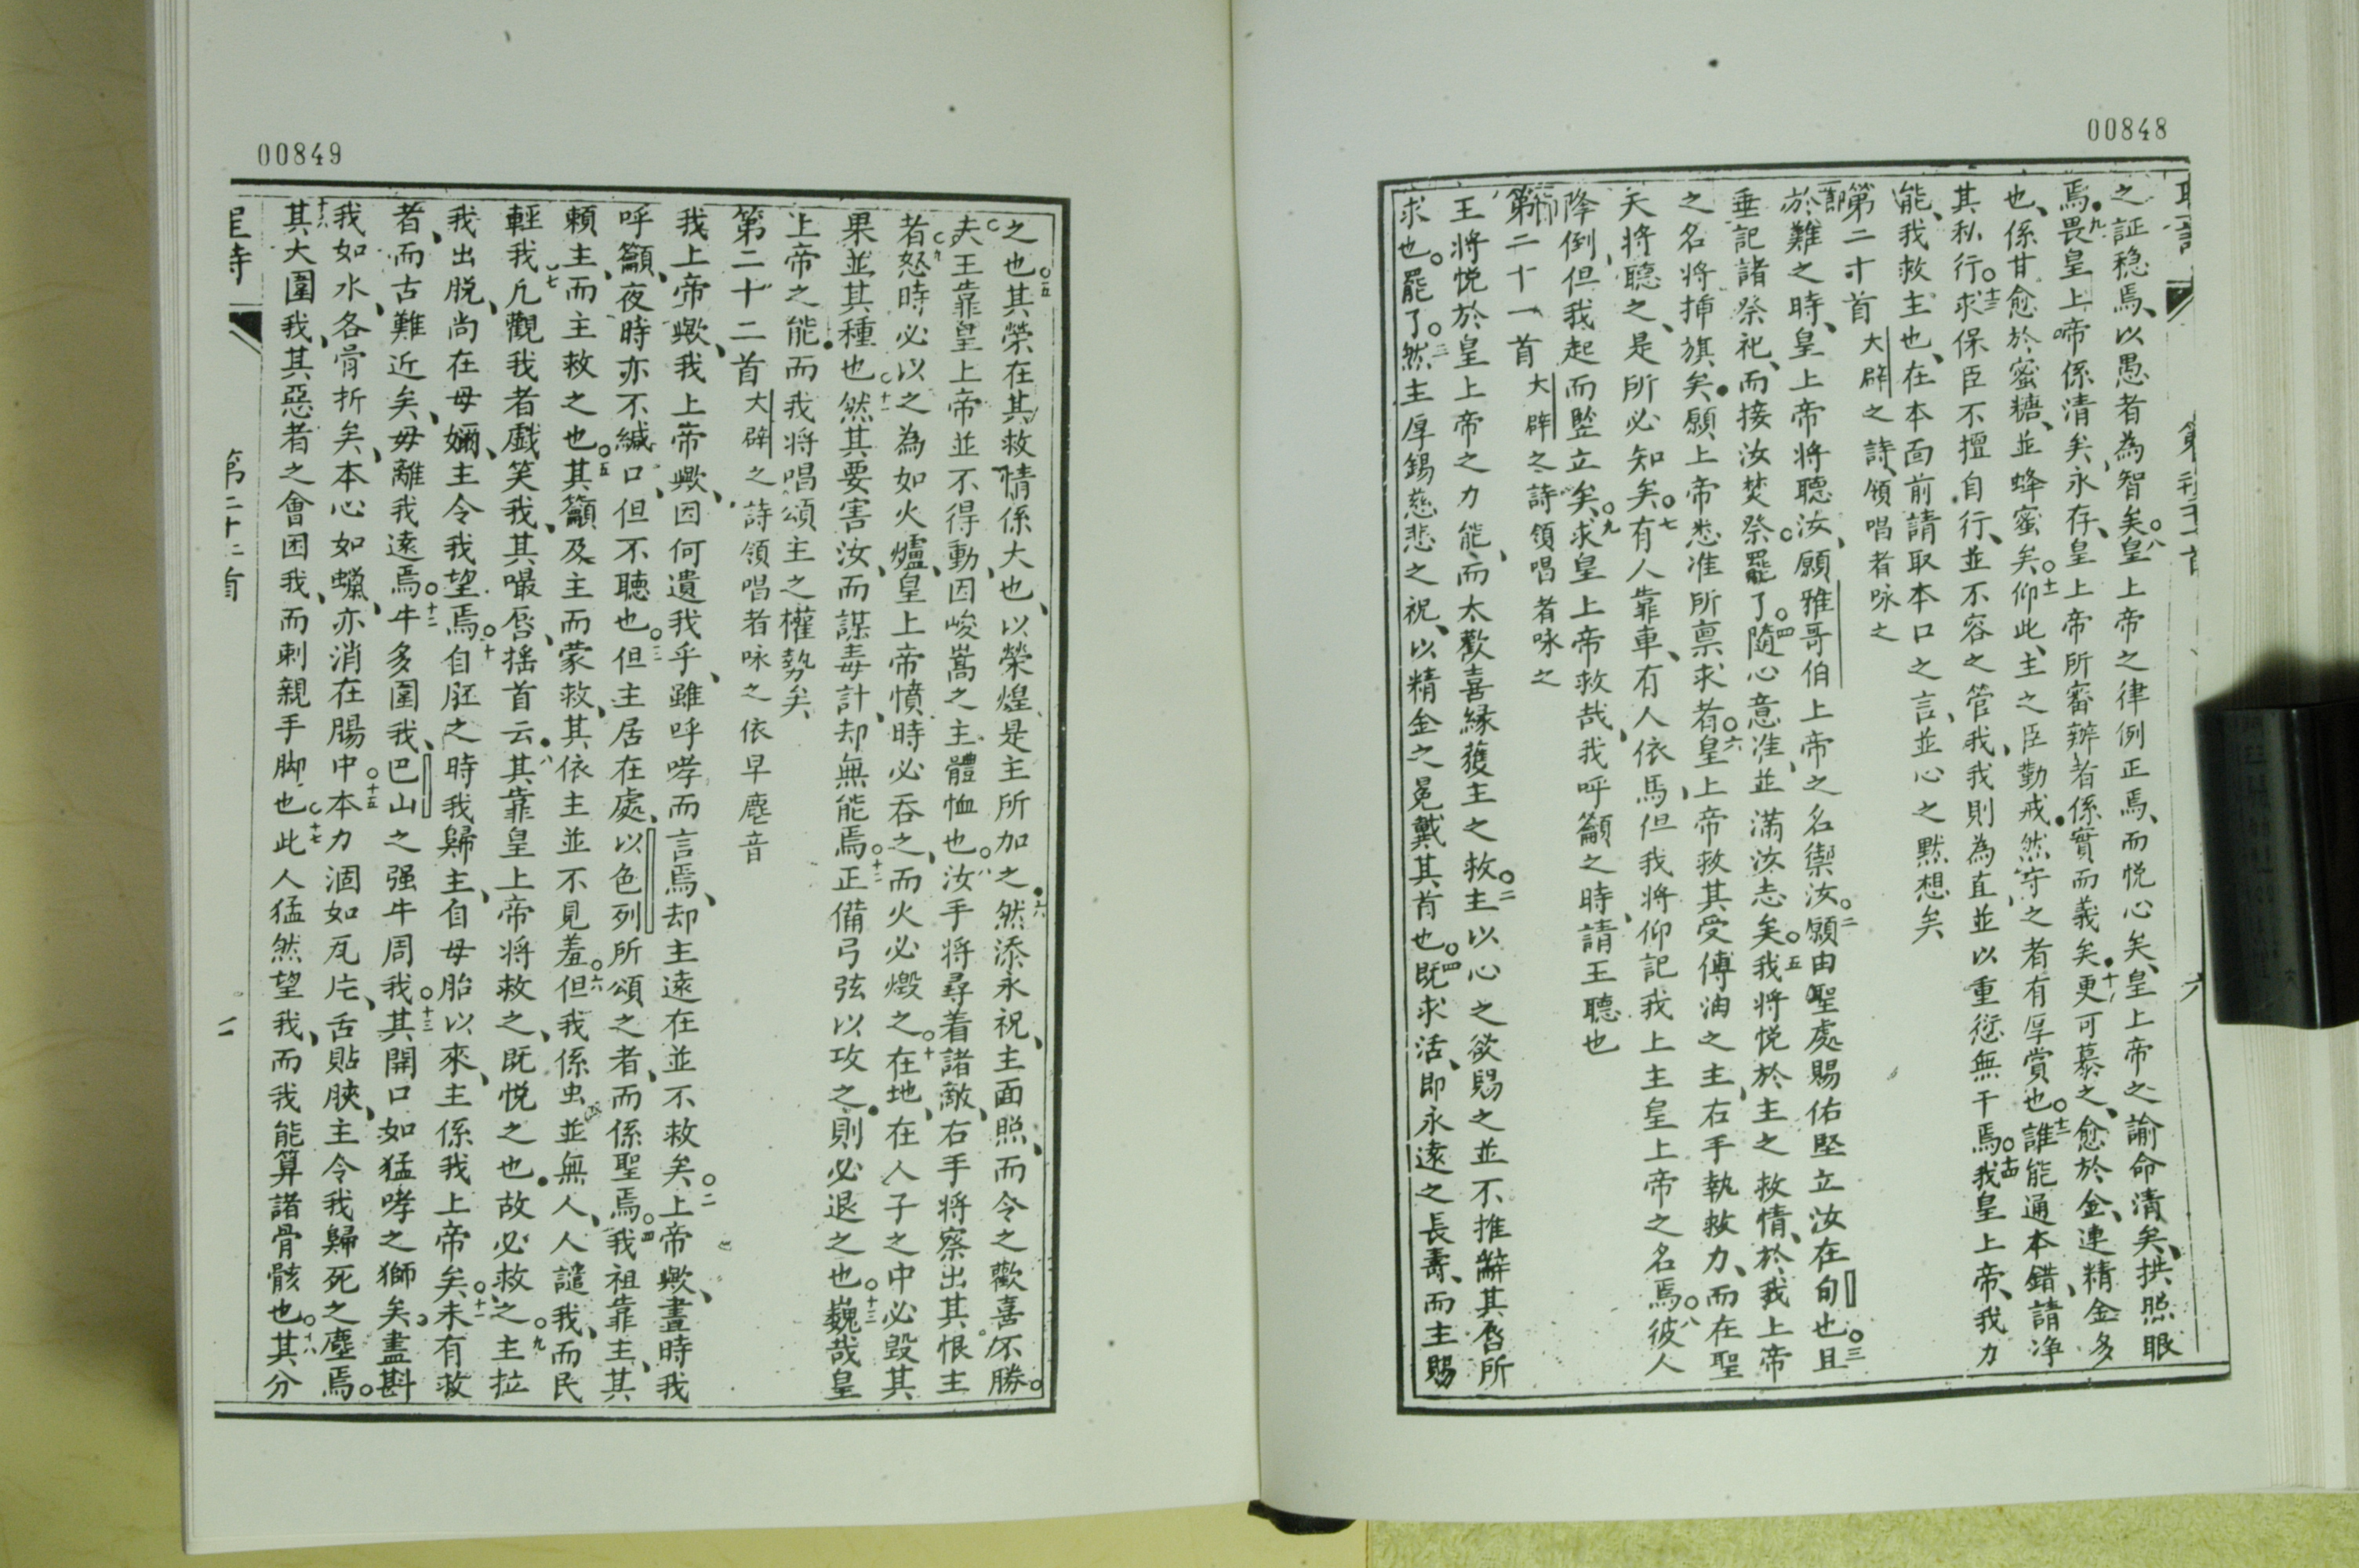 00848
之証穏焉、以愚者為智矣。八皇上帝之律例正焉、而悦心矣、皇上帝之諭命清矣、拱照眼
焉。九畏皇上帝係清矣、永存、皇上帝所審辦者係實而義矣。十更可慕之、愈於金、連精金多
也、係甘愈於蜜糖、並蜂蜜矣。十一仰此、主之臣、勤戒、然守之者有厚賞也。十二誰能通本錯、請净
其私行。十三求保臣不擅自行、並不容之管我、我則為直並以重愆無干焉。十四我皇上帝、我力
能、我救主也、在本面前請取本口之言、並心之黙想矣
第二十首 大辟之詩、領唱者咏之
於難之時、皇上帝將聽汝、願雅哥伯上帝之名禦汝。二願由聖處賜佑堅立汝在旬也。三且
垂記諸祭祀、而接汝焚祭。罷了。四隨心意准、並滿汝志矣。五我將悦於主之救情、於我上帝
之名將揷旗矣。願上帝悉准所禀求者。六皇上帝救其受傅油之主、右手執救力、而在聖
天將聽之、是所必知矣。七有人靠車、有人依馬但我將仰記我上主皇上帝之名焉。八彼人
降倒但我起而竪立矣。九求皇上帝救哉、我呼籲之時、請王聽也
第二十一首 大辟之詩領唱者咏之
王將悦於皇上帝之力能、而太歡喜緣獲主之救。二主以心之欲賜之並不推辭其唇所
求也。罷了。三然主厚錫慈悲之祝、以精金之冕戴其首也。四既求活、即永遠之長壽、而主賜
00849
之也。五其榮在其救情係大也、以榮煌是主所加之。六然添永祝、主面照、而令之歡喜不勝。
七夫王靠皇上帝並不得動、因峻嵩之主體恤也。八汝手將尋着諸敵、右手將察出其恨主
者。九怒時必以之為如火爐、皇上帝憤時必吞之、而火必燬之。十在地、在人子之中必毀其
果並其種也。十一然其要害汝、而謀毒計、却無能焉。十二正備弓弦以攻之、則必退之也。十三巍哉皇
上帝之能、而我將唱頌主之權勢矣
第二十二首 大辟之詩領唱者咏之依早塵音
我上帝歟、我上帝歟、因何遺我乎、雖呼哮而言焉、却主遠在並不救矣。二上帝歟、晝時我
呼籲、夜時亦不緘口、但不聽也。三但主居在處、以色列所頌之者、而係聖焉。四我祖靠主、其
賴主、而主救之也。五其籲及主而蒙救、其依主並不見羞。六但我係虫並無人、人譴我、而民
輕我。七凡觀我者戲笑我、其嘬唇、搖首云。八其靠皇上帝將救之、既悦之也。故必救之。九主拉
我出脱、尚在母嬭、主令我望焉。十自胚之時我歸主、自母胎以來、主係我上帝矣。十一未有救
者、而古難近矣、毋離我遠焉。十二牛多圍我、巴山之强牛周我。十三其開口如猛哮之獅矣。盡斟
我如水、各骨折矣、本心如蠟、亦消在腸中。十五本力涸如瓦庀、舌貼脥、主令我歸死之塵焉。
十六其大圍我、其惡者之會困我、而刺親手脚也。十七此人猛然望我、而我能算諸骨骸也。十八其分
第二十二首